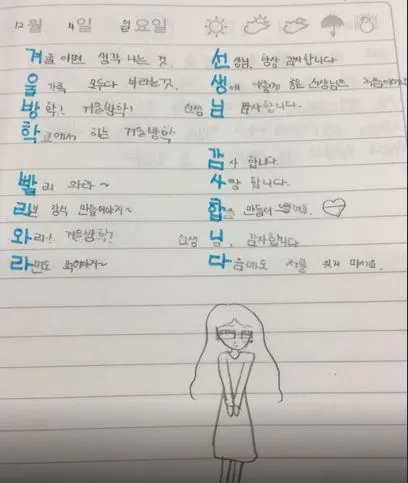 12월 4일 월요일
겨울 하면 생각 나는 것.
울 가족 모두다 바라는 것.
방학! 겨울방학!
학교에서 하는 겨울방학
빨리 와라~
리본 장식 만들어야지~
와라! 겨울방학?
라면도 먹어야지~
선생님, 항상 감사합니다
생에 이렇게 좋은 선생님은 처음이에요
선생님 감사합니다.
감사 합니다.
사랑 합니다.
합 만들어
선생님, 감사합니다
다음에도 저를 잊지 마세요.